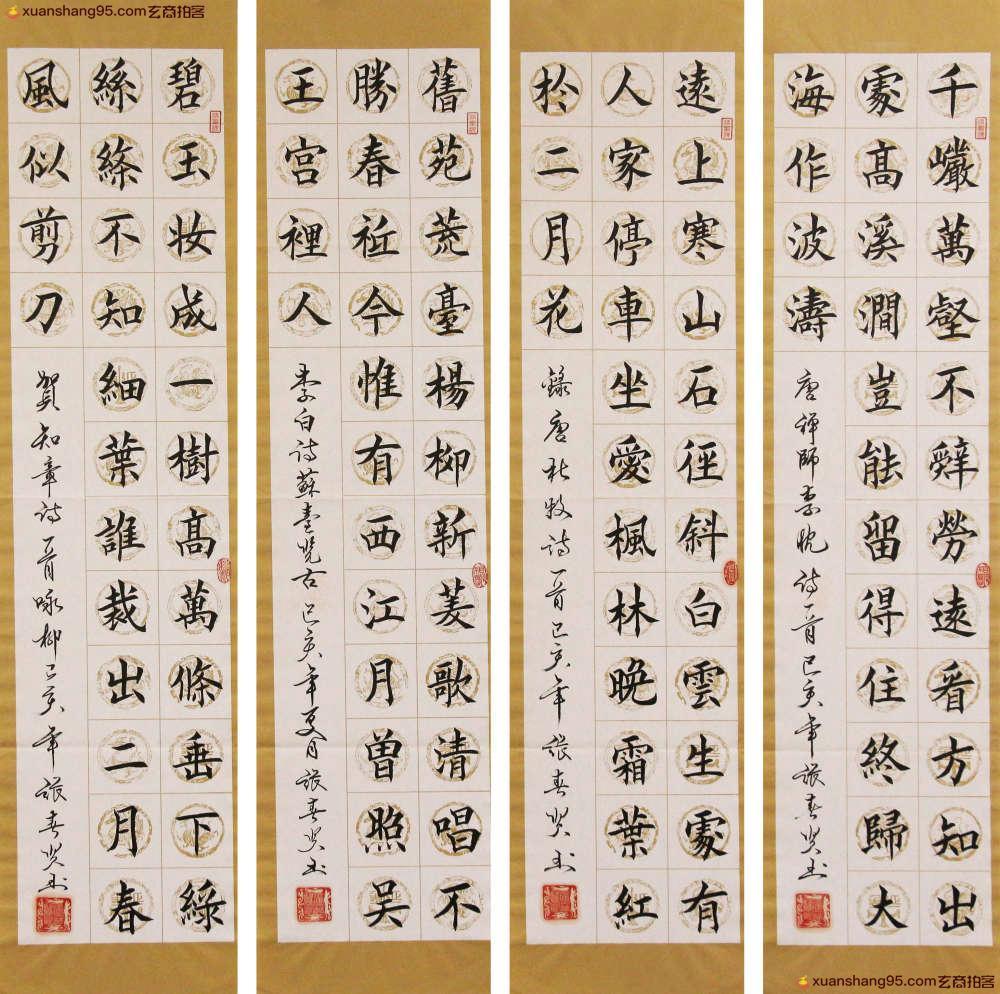 千巗萬壑不辤勞遠看方知出
處高溪澗豈能留得住終歸大
海作波濤
唐禅師李忱诗一首己亥年張春贤书
遠上寒山石徑斜白雲生處有
人家停車坐愛楓林晚霜葉紅
扵二月花
錄唐杜牧诗一首己亥年張春贤书
舊苑荒臺楊柳新菱歌清唱不
勝春祗今惟有西江月曾照吳
王宫裡人
李白诗蘇臺览古己亥年夏月張春贤书
碧玉妝成一樹高萬條垂下綠
絲絛不知細葉誰裁出二月春
風似剪刀
賀知章诗一首咏柳己亥年張春贤书
xuanshang95.com玄商拍客
xuanshang95.com玄商拍客